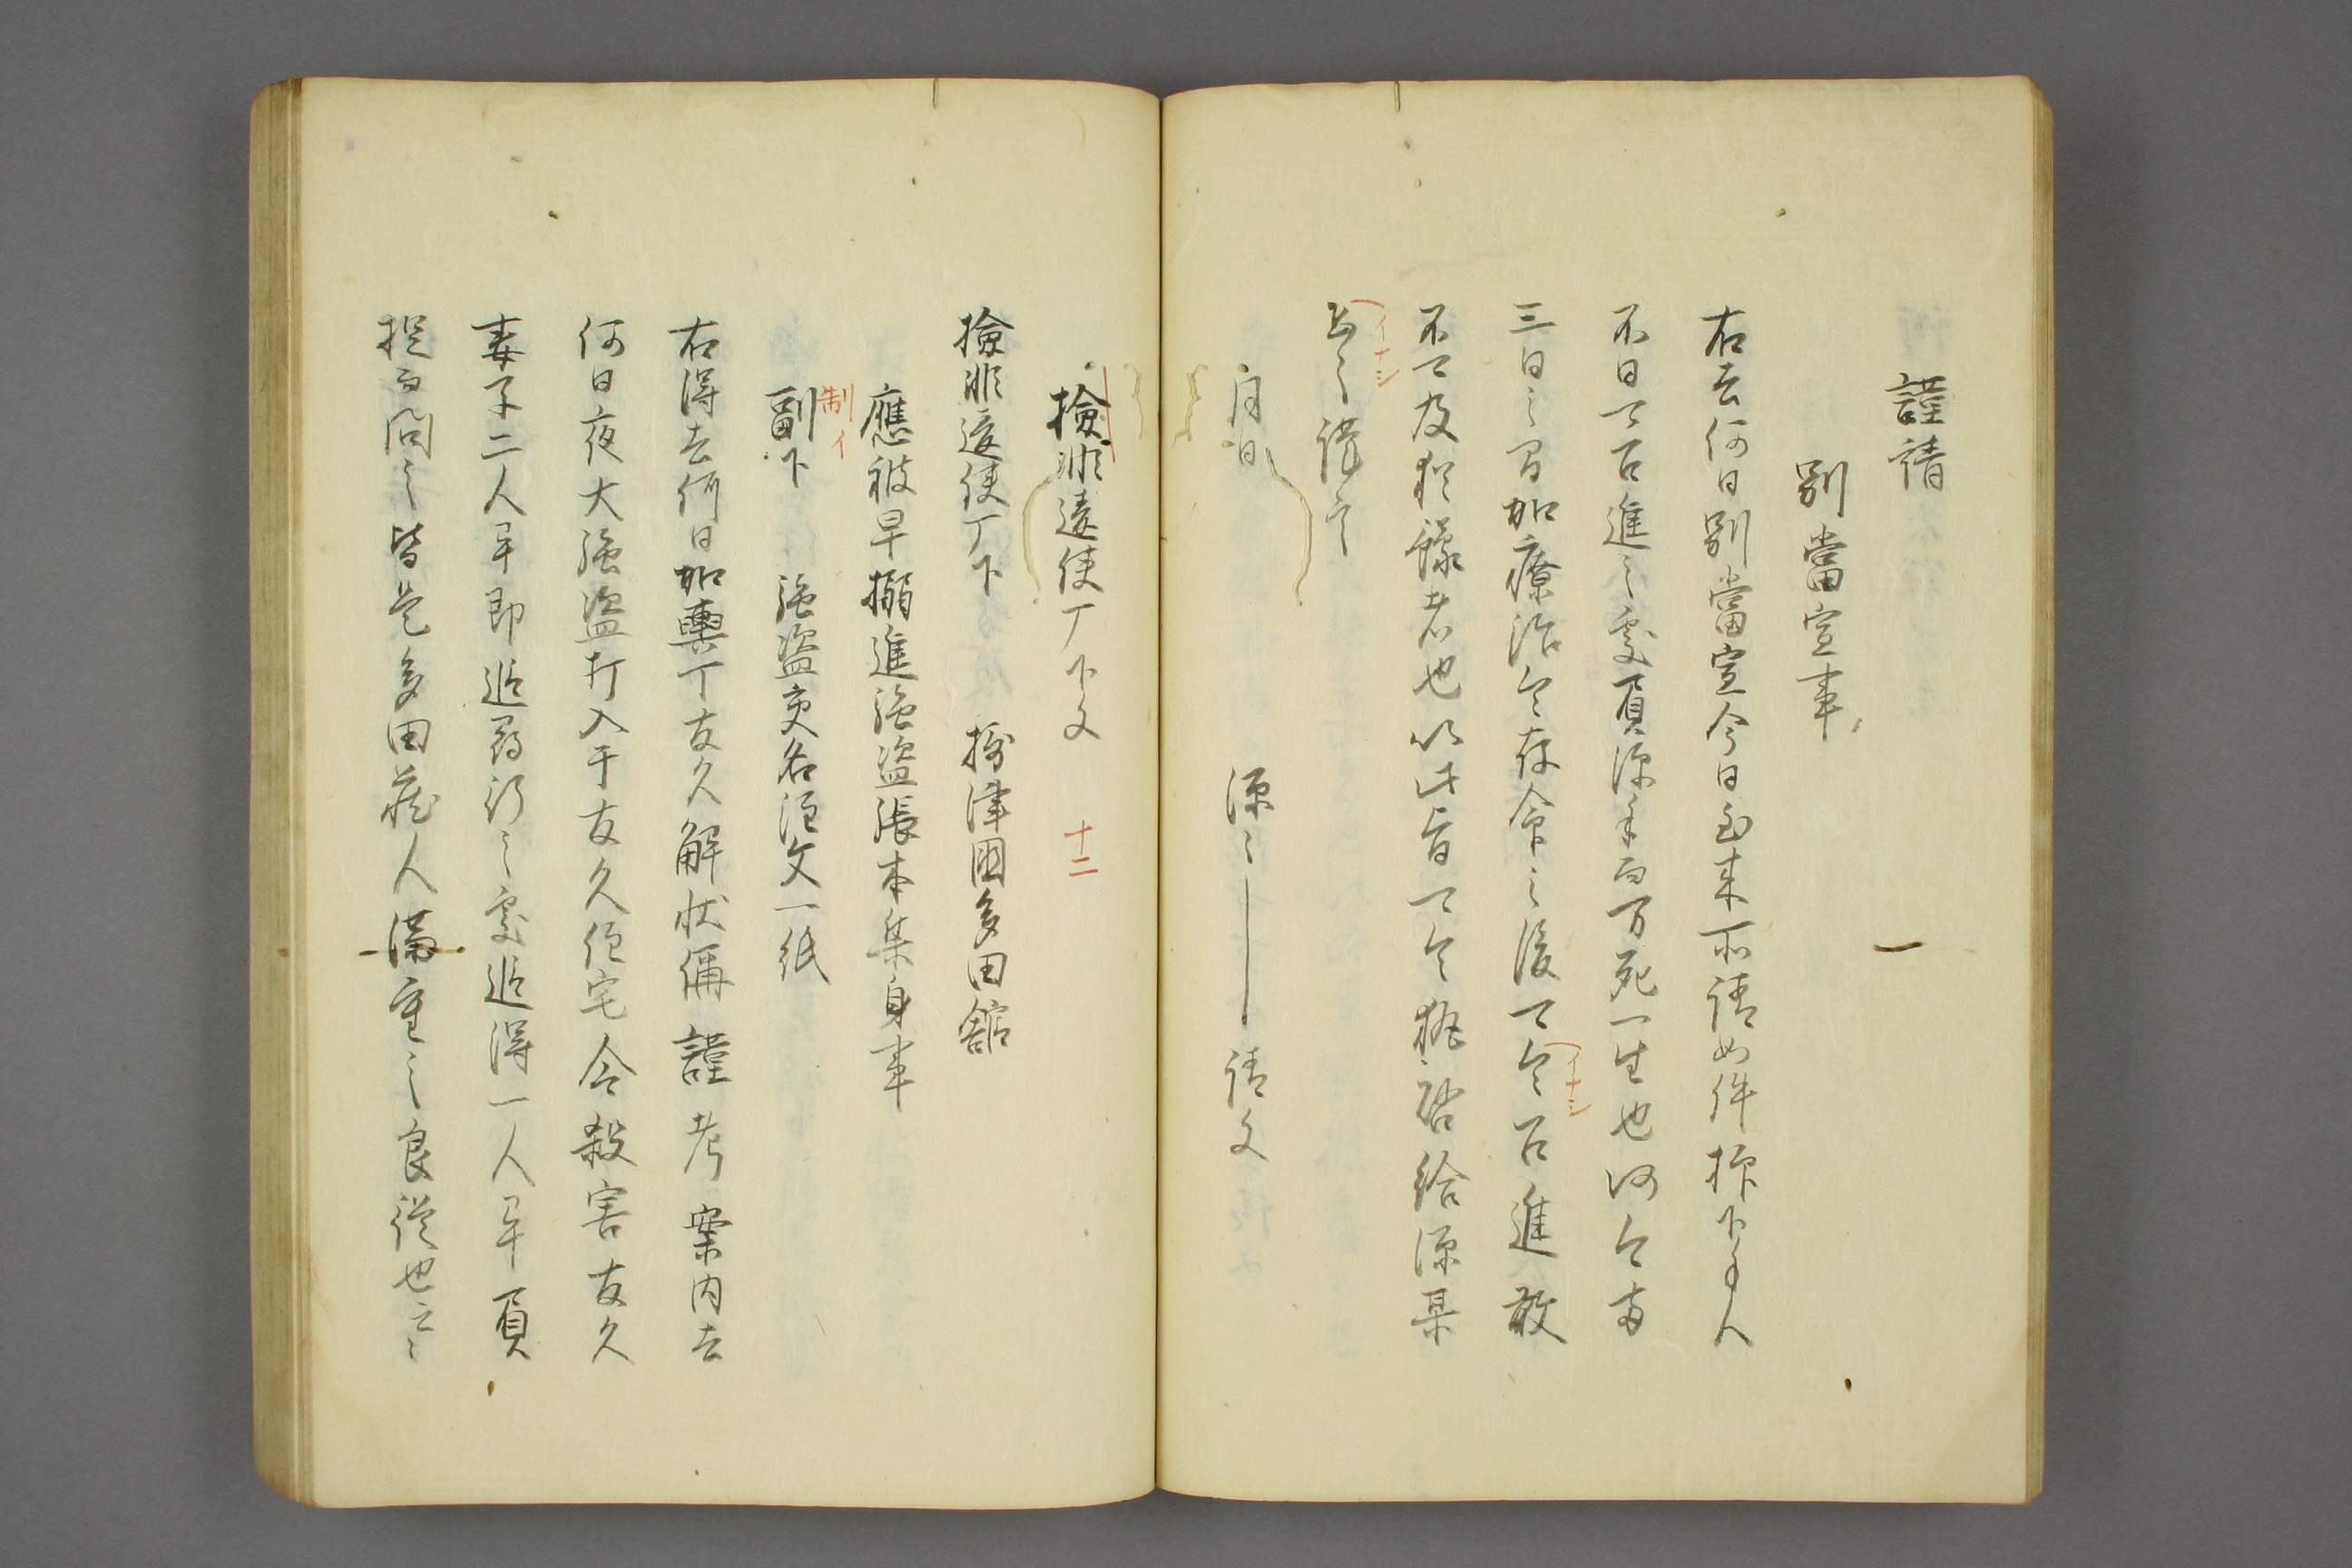 謹請
別當宣事
右去何日別當宣今日到来所請如件抑下手人
不日可召進之處負深手而万死一生也仍今両
三日之間加療治令存命之後可令召進敢
イナシ
不可及猶豫者也以此旨可令披啓給源某
恐之謹言
イナシ
月日
源之 請文
檢非違使廳下文
十二
檢非違使廳下 摂津國多田舘
應被早搦進強盗張本某身事
副下 強盗交名注文一紙
制イ
右得去何日加輿丁友久解状偁謹考案内去
何日夜大強盗打入于友久住宅令殺害友久
妻子二人畢即追尋行之處追得一人畢負
捉而問之皆是多田蔵人満重之良従也云々